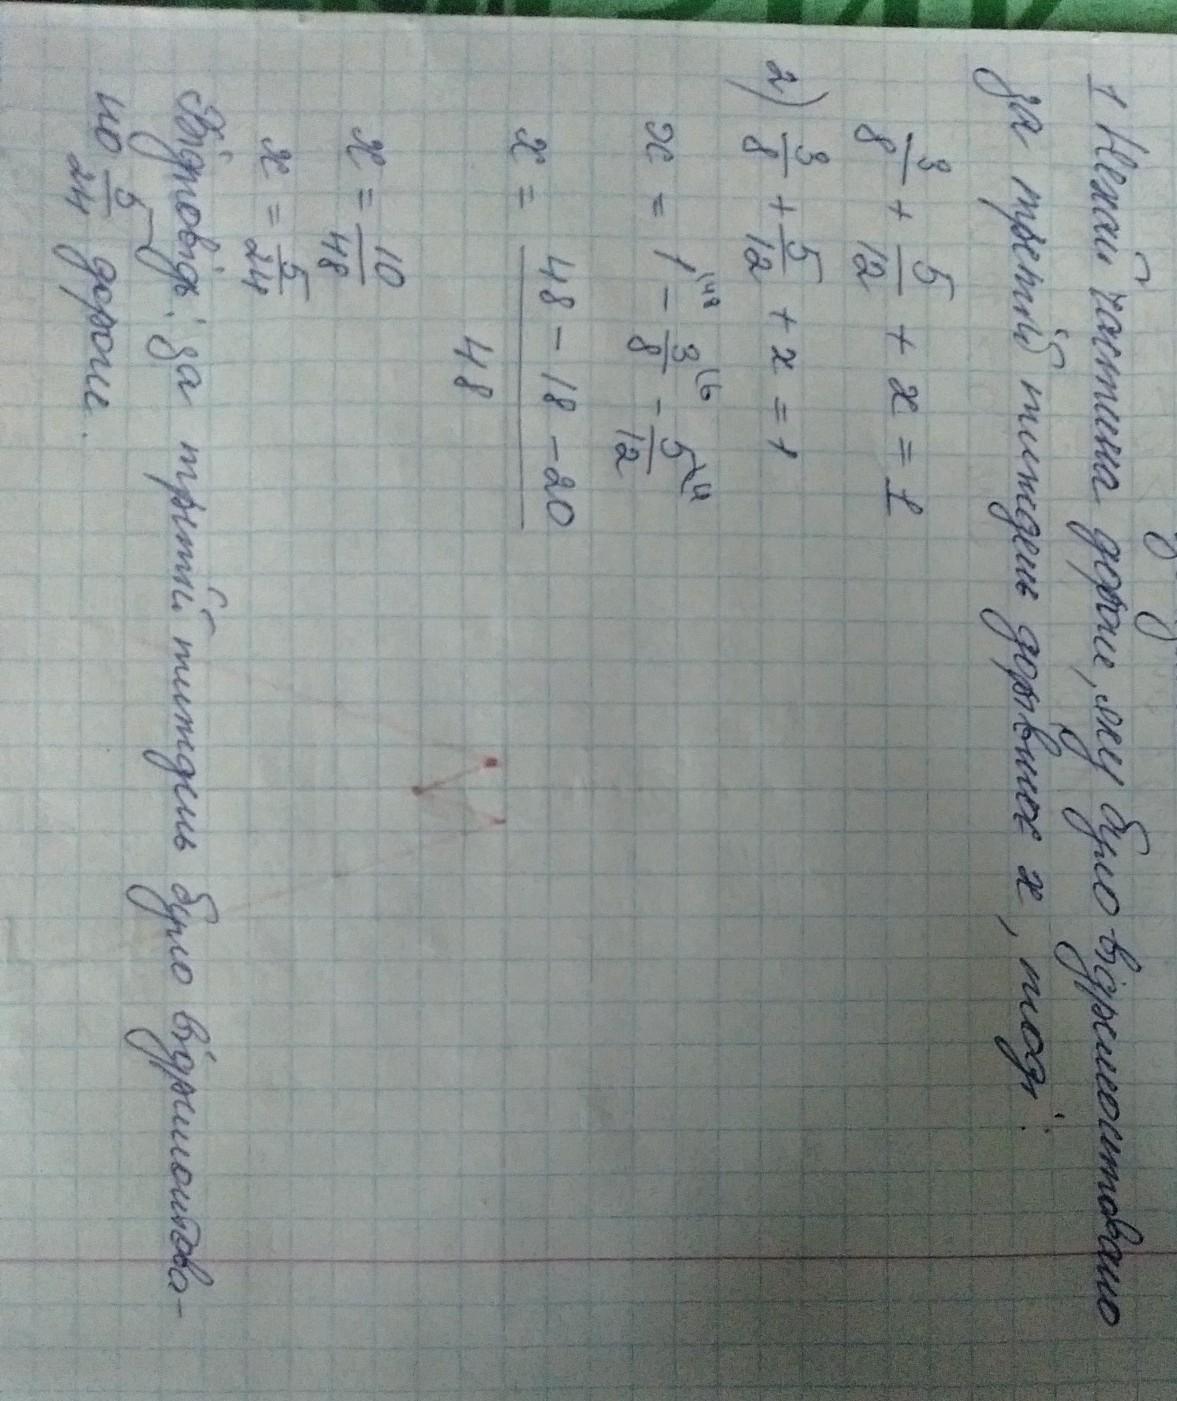 1 Нехай частина дороги, яку було відремонтовано
за третій тиждень дорівнює x, тоді:
3/8 + 5/12 + x = 1
2) 3/8 + 5/12 + x = 1
x = 1\48 - 3/8\6 - 5/12\4
x = (48 - 18 - 20)/48
x = 10/48
x = 5/24
Відповідь: за третій тиждень було відремонтова-
но 5/24 дороги.